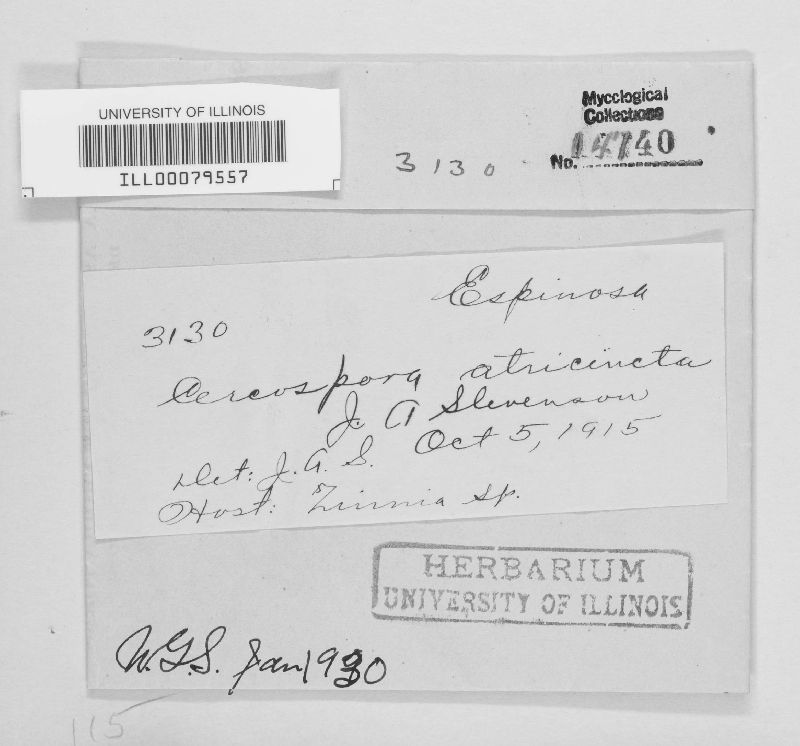 UNIVERSITY OF ILLINOIS
ILL00079557
Mycological
Collections
No. 14740
3130
Espinosa
3130
Cercospora atricincta
J. A Stevenson
Oct 5, 1915
Det: J. A. S.
Host: Zinnia sp.
HERBARIUM
UNIVERSITY OF ILLINOIS
W.G.S. Jan 1930
115